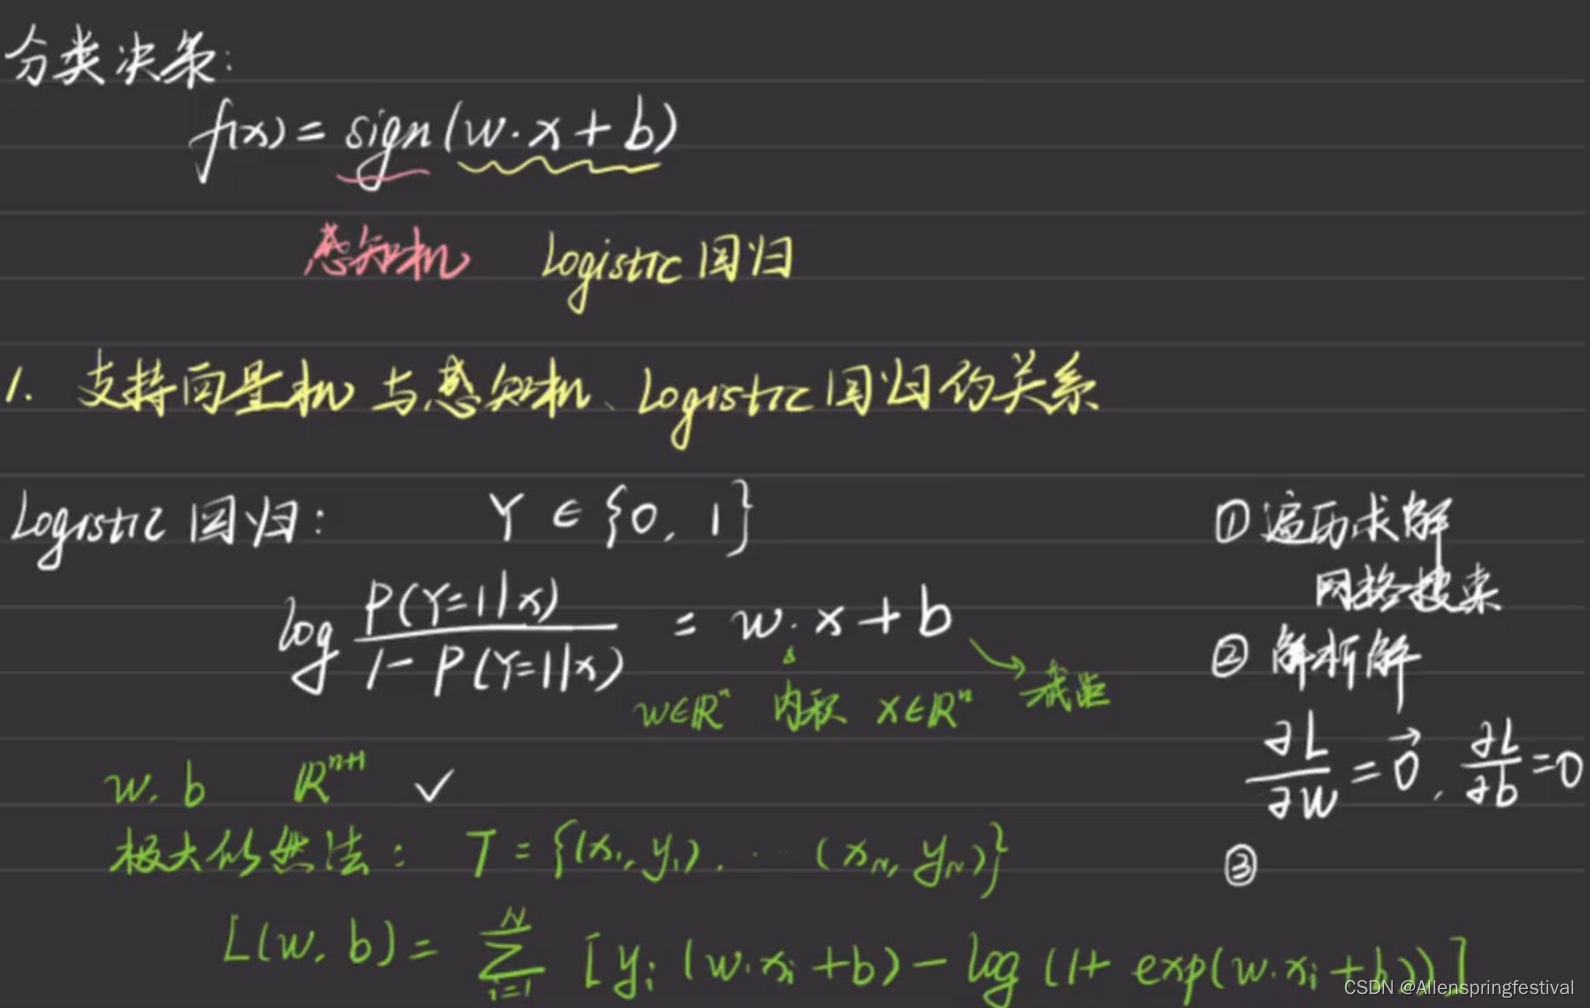 分类决策:
f(x) = sign(w·x+b)
感知机 Logistic 回归
1. 支持向量机与感知机、Logistic 回归的关系
Logistic 回归: Y ∈ {0, 1}
log P(Y=1|x) / 1-P(Y=1|x) = w·x+b
w∈ℝⁿ 内积 x∈ℝⁿ → 截距
w, b ℝⁿ⁺¹ ✓
极大似然法: T = {(x₁, y₁), ... (x_N, y_N)}
L(w, b) = ∑_{i=1}^{N} [y_i (w·x_i+b) - log (1+ exp(w·x_i+b))]
① 遍历求解
网格搜索
② 解析解
∂L/∂w = 0⃗, ∂L/∂b = 0
③
CSDN @Allenspringfestival